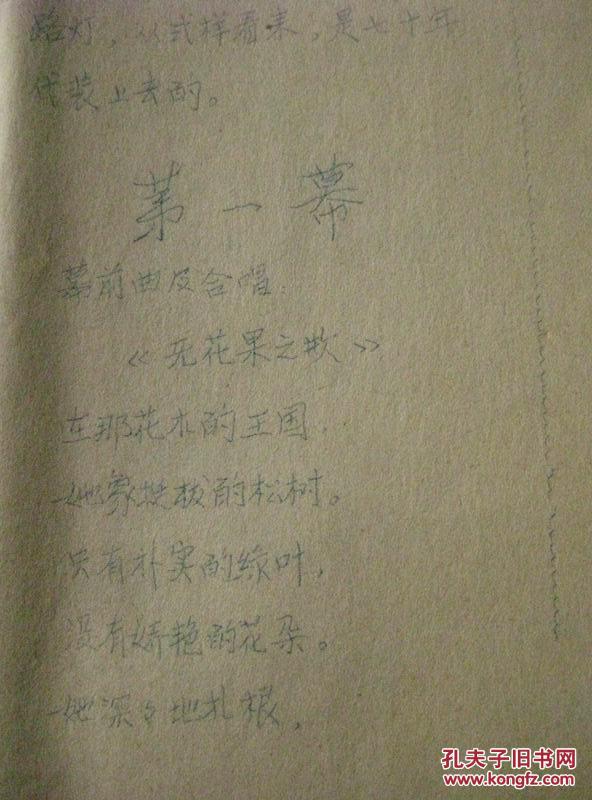 路灯，从式样看来，是七十年
代装上去的。
第一幕
幕前曲及合唱.
《无花果之歌》
在那花木的王国.
她象挺拔的松树。
只有朴实的绿叶，
没有娇艳的花朵。
她深々地扎根，
孔夫子旧书网
www.kongfz.com